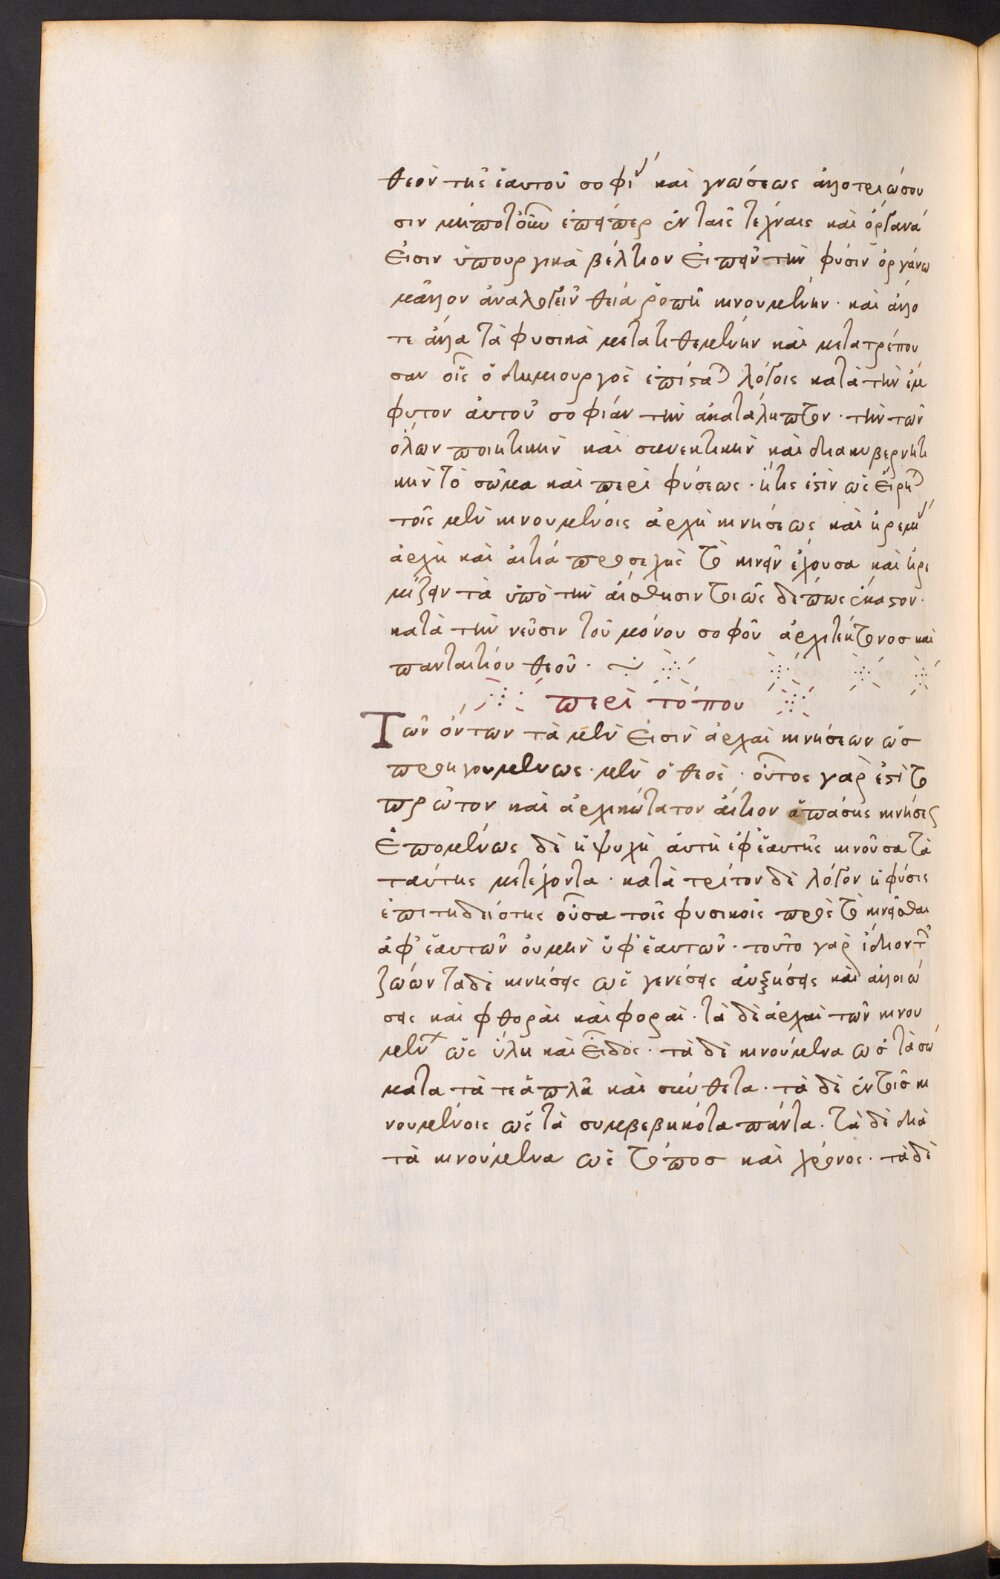 θεὸν τῆς ἑαυτοῦ σοφί καὶ γνώσεως ἀλλοτριώσου
σιν μήποτ οὖν ἐπείπερ ἐν ταῖς τέχναις καὶ ὄργανά
εἰσιν ὑπουργικὰ βέλτιον εἰπεῖν τὴν φύσιν ὀργάνω
μᾶλλον ἀναλογεῖν θεία ῥοπῆ κινουμένην · καὶ ἄλλο
τε ἄλλα τὰ φυσικὰ μετατιθεμένην καὶ μετατρέπου
σαν οἷς ὁ δημιουργὸς ἐπίσταται λόγοις κατὰ τὴν ἔμ
φυτον αὐτοῦ σοφίαν τὴν ἀκατάληπτον · τὴν τῶν
ὅλων ποιητικὴν καὶ συνεκτικὴν καὶ διακυβερνητι
κὴν τὸ σῶμα καὶ περὶ φύσεως · ἥτις ἐστὶν ὡς εἴρηται
τοῖς μὲν κινουμένοις ἀρχὴ κινήσεως καὶ ἠρεμί
ἀρχὴ καὶ αἰτία προσεχὴς τὸ κινεῖν ἔχουσα καὶ ἠρε
μίζειν τὰ ὑπὸ τὴν αἴσθησιν τοιῶς δέ πως ἕκαστον ·
κατὰ τὴν νεῦσιν τοῦ μόνου σοφοῦ ἀρχιτέκτονοσ καὶ
πανταιτίου θεοῦ ·
περὶ τόπου
Τῶν ὄντων τὰ μέν εἰσιν ἀρχαὶ κινήσεων ὡσ
προηγουμένως · μὲν ὁ θεὸς · οὗτος γάρ ἐστι τὸ
πρῶτον καὶ ἀρχικώτατον αἴτιον ἁπάσης κινήσεως
Ἑπομένως δὲ ἡ ψυχὴ αὐτὴ ἐφ' ἑαυτῆς κινοῦσα τὰ
ταύτης μετέχοντα · κατὰ τρίτον δὲ λόγον ἡ φύσις
ἐπιτηδειότης οὖσα τοῖς φυσικοῖς πρὸς τὸ κινεῖσθαι
ἀφ' ἑαυτῶν οὐ μὴν ὑφ' ἑαυτῶν · τοῦτο γὰρ ἴδιον τῶν
ζώων τὰ δὲ κινήσεις ὡς γενέσεις αὐξήσεις καὶ ἀλλοιώ
σεις καὶ φθοραὶ καὶ φοραὶ · τὰ δὲ ἀρχαὶ τῶν κινου
μένων ὡς ὕλη καὶ εἶδος · τὰ δὲ κινούμενα ὡς τὰ σώ
ματα τά τε ἁπλᾶ καὶ σύνθετα · τὰ δὲ ἐν τοῖσ κι
νουμένοις ὡς τὰ συμβεβηκότα πάντα · τὰ δὲ διὰ
τὰ κινούμενα ὡς τόποσ καὶ χρόνος · τὰ δὲ